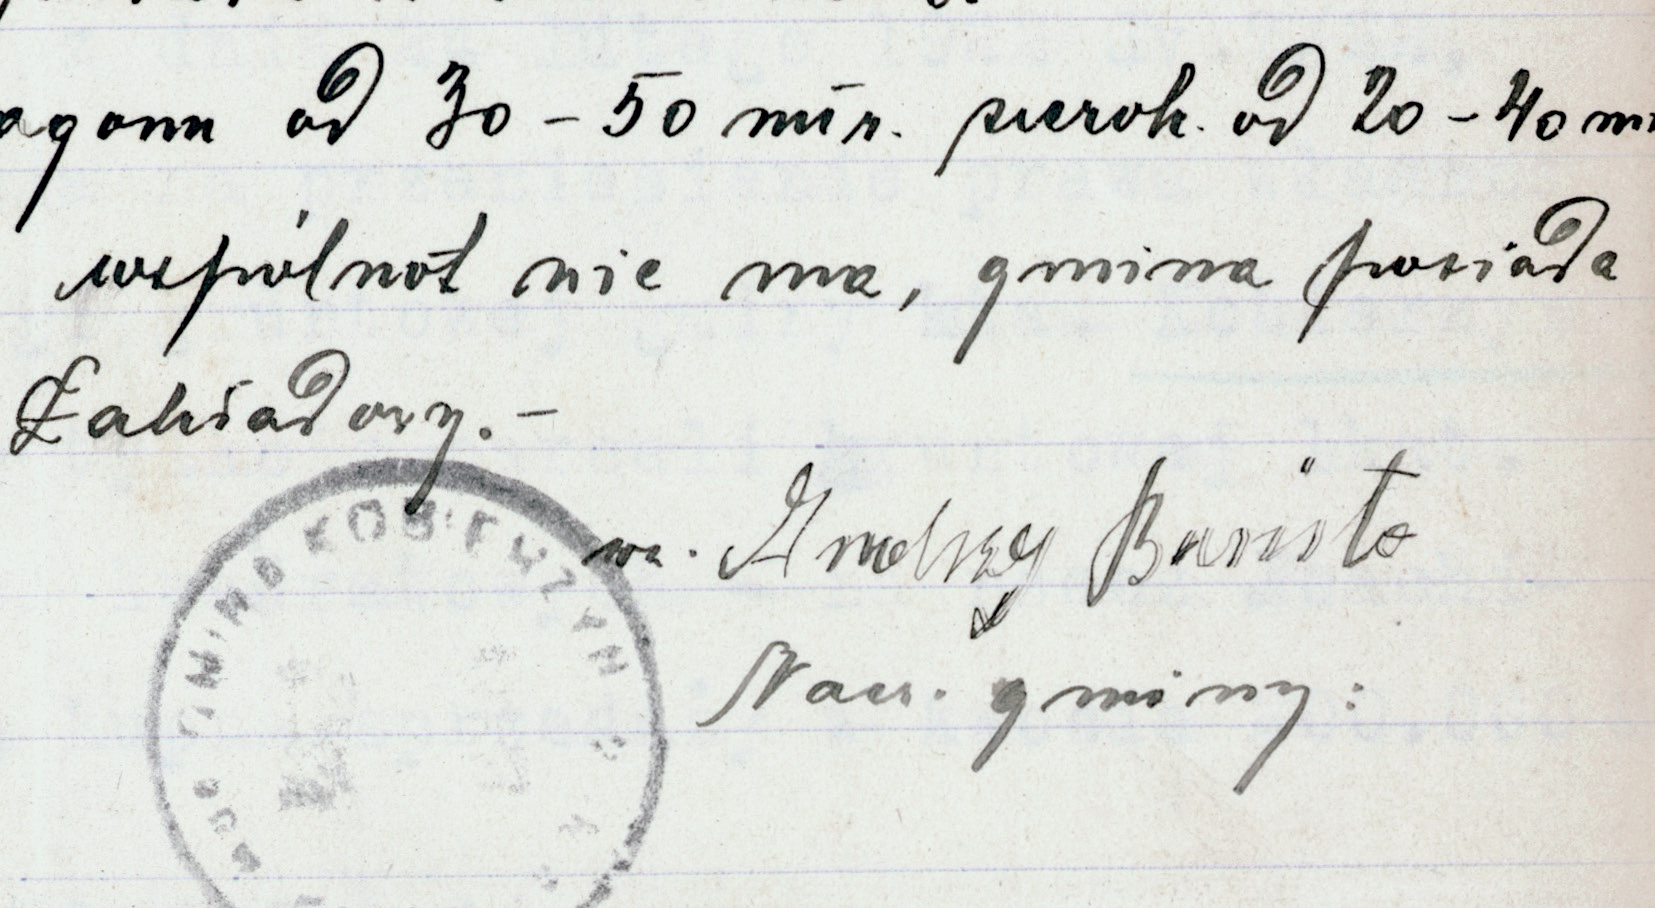 agonu od 30 - 50 mtr. szerok. od 20 - 40 m
wspólnot nie ma, gmina posiada
Zakładowy. -
GMINA KOBIERZYN
wz. Andrzej
Nacz. gminy: